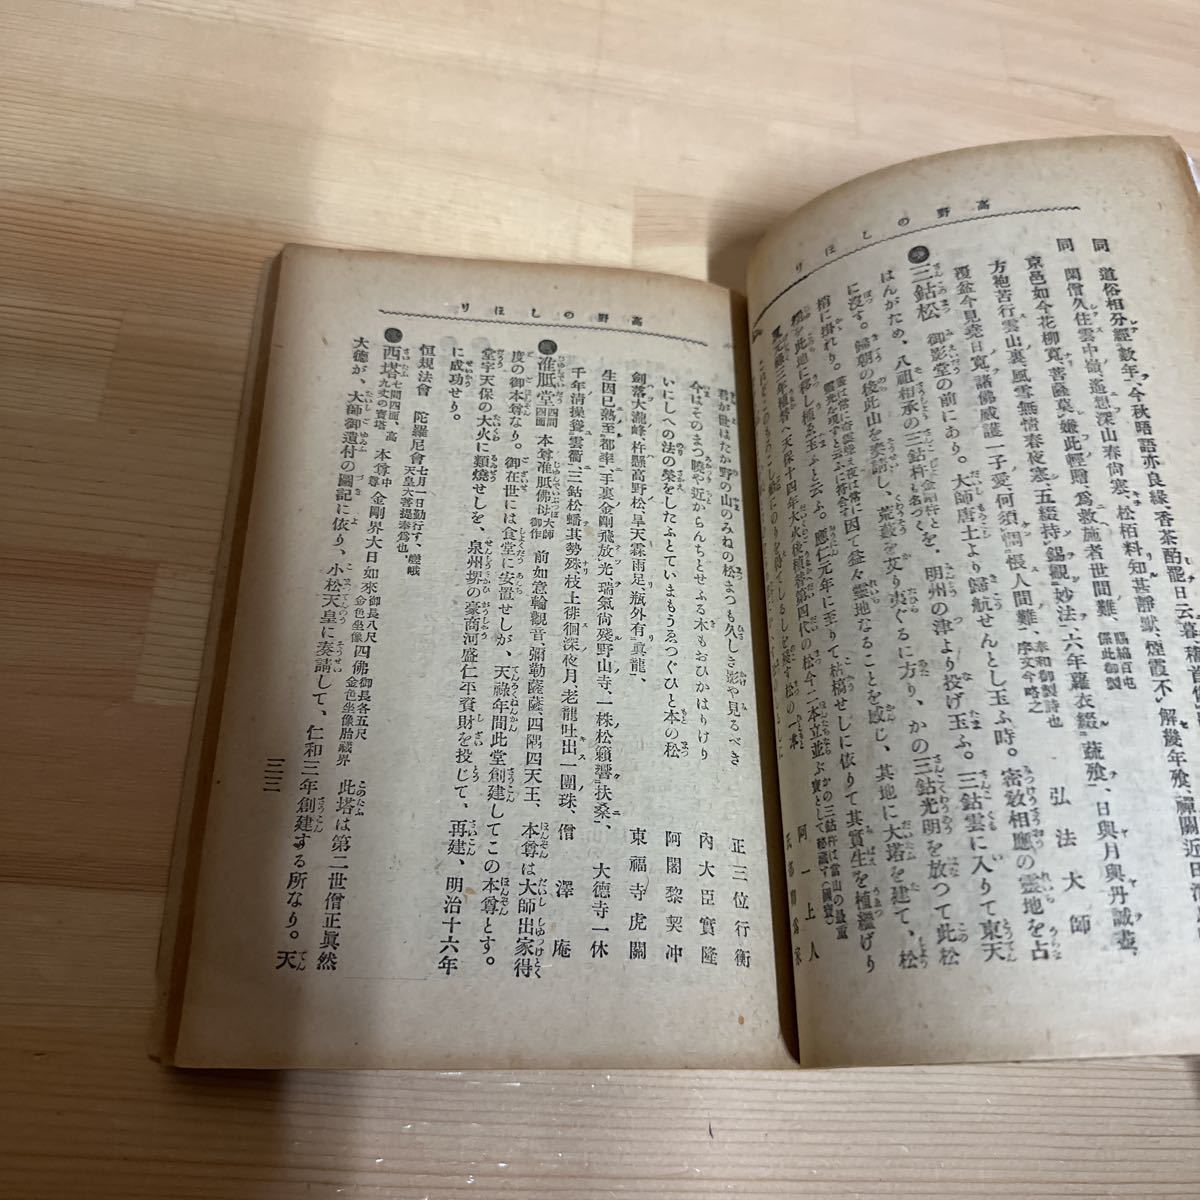 高野のしほり
同 道俗相分經數年、今秋晤語亦良緣、香茶酌罷日云暮、稽首
同 閑僧久住雲中嶺、遙想深山春尙寒、松柏料知甚靜默、煙霞不解幾年飱、禪關近日
京邑如今花柳寬、菩薩莫嫌此輕贈、爲救施者世間難、
弘法大師
方袍苦行雲山裏、風雪無情春夜寒、五綴持錫觀妙法、六年蘿衣啜蔬飱、日與月與丹誠盡、
覆盆今見堯日寬、諸佛威護一子愛、何須惆悵人間難、
三鈷松 御影堂の前にあり。大師唐土より歸航せんとし玉ふ時。密敎相應の靈地を占
はんがため、八祖相承の三鈷杵を、明州の津より投げ玉ふ。三鈷雲に入りて東天
に沒す。歸朝の後此山を奏請し、荒藪を芟り夷ぐるに方り、かの三鈷光明を放つて此松
梢に掛れり。因て益々靈地なることを感じ、其地に大塔を建て、松
樹を此地に移し植ゑ玉ふと云ふ。應仁元年に至りて枯槁せしに依りて其實生を植繼げり
阿一上人
高野のしほり
君が世はたか野の山のみねの松まつも久しき影や見るべき 正三位行衡
今はそのまつ曉や近からんちとせふる木もおひかはけり 內大臣實隆
いにしへの法の榮をしたふとていまもうゑつぐひと本の松 阿闍黎契冲
劍落大瀧峰、杵懸高野松、旱天霖雨足、瓶外有眞龍、 東福寺虎關
生因已熟至都率、手裏金剛飛放光、瑞氣尙殘野山寺、一株松籟響扶桑、 大德寺一休
千年淸操聳雲衢、三鈷松蟠其勢殊、枝上徘徊深夜月、老龍吐出一團珠、 僧澤庵
准胝堂 四間四面 本尊准胝佛母 大師御作 前如意輪觀音、彌勒薩薩、四隅四天王、 本尊は大師出家得
度の御本尊なり。御在世には食堂に安置せしが、天祿年間此堂創建してこの本尊とす。
堂宇天保の大火に類燒せしを、泉州堺の豪商河盛仁平資財を投じて、再建、明治十六年
に成功せり。
恒規法會 陀羅尼會 七月一日勤行す、嵯峨天皇大菩提奉爲也、
西塔 七間四面、高九丈の寶塔 本尊 中尊金剛界大日如來 御長八尺金色坐像 四佛 御長各五尺金色坐像胎藏界 此塔は第二世僧正眞然
大德が、大師御遺付の圖記に依り、小松天皇に奏請して、仁和三年創建する所なり。天
三三